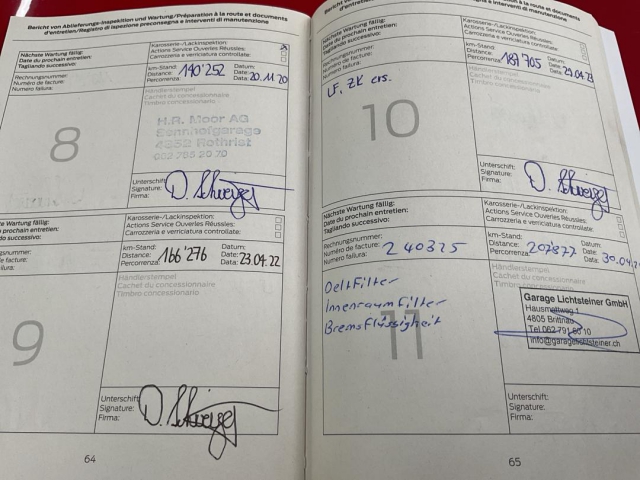 Bericht von Ablieferungs-Inspektion und Wartung/Préparation à la route et documents
d'entretien/Registro di ispezione preconsegna e interventi di manutenzione
Nächste Wartung fällig:
Date du prochain entretien:
Tagliando successivo:
Karosserie-/Lackinspektion:
Actions Service Ouvertes Réussies:
Carrozzeria e verniciatura controllate:
Rechnungsnummer:
Numéro de facture:
Numero fattura:
km-Stand:
Distance:
Percorrenza:
140'252
Datum:
Date:
Data:
20.11.20
8
Händlerstempel
Cachet du concessionnaire
Timbro concessionario
H.R. Moor AG
Sennhofgarage
4852 Rothrist
062 785 20 70
Unterschrift:
Signature:
Firma:
Wartung fällig:
prochain entretien:
successivo:
Karosserie-/Lackinspektion:
Actions Service Ouvertes Réussies:
Carrozzeria e verniciatura controllate:
nummer:
de facture:
fattura:
km-Stand:
Distance:
Percorrenza:
166'276
Datum:
Date:
Data:
23.04.22
9
Händlerstempel
Cachet du concessionnaire
Timbro concessionario
Unterschrift:
Signature:
Firma:
64
Bericht von Ablieferungs-Inspektion und Wartung/Préparation à la route et documents
d'entretien/Registro di ispezione preconsegna e interventi di manutenzione
Nächste Wartung fällig:
Date du prochain entretien:
Tagliando successivo:
Karosserie-/Lackinspektion:
Actions Service Ouvertes Réussies:
Carrozzeria e verniciatura controllate:
Rechnungsnummer:
Numéro de facture:
Numero fattura:
km-Stand:
Distance:
Percorrenza:
187'705
Datum:
Date:
Data:
LF, ZK ers.
10
Händlerstempel
Cachet du concessionnaire
Timbro concessionario
Unterschrift:
Signature:
Firma:
Nächste Wartung fällig:
Date du prochain entretien:
Tagliando successivo:
Karosserie-/Lackinspektion:
Actions Service Ouvertes Réussies:
Carrozzeria e verniciatura controllate:
Rechnungsnummer:
Numéro de facture:
Numero fattura:
240325
km-Stand:
Distance:
Percorrenza:
207'877
Datum:
Date:
Data:
30.04.
Oelfilter
Innenraumfilter
Bremsflüssigheit
11
Händlerstempel
Cachet du concessionnaire
Garage Lichtsteiner GmbH
Hausmattweg 1
4805 Brittnau
Tel.062 791 80 10
info@garagelichtsteiner.ch
Unterschrift:
Signature:
Firma:
65